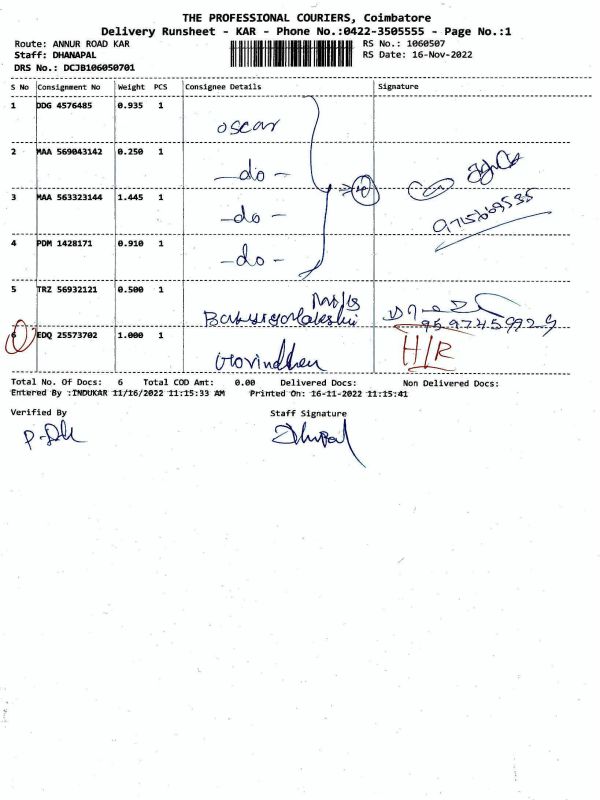 THE PROFESSIONAL COURIERS, Coimbatore
Delivery Runsheet - KAR - Phone No.:0422-3505555 - Page No.:1
Route: ANNUR ROAD KAR
RS No.: 1060507
Staff: DHANAPAL
RS Date: 16-Nov-2022
DRS No.: DCJB106050701
S No Consignment No Weight PCS Consignee Details Signature
1 DDG 4576485 0.935 1
oscar
2 MAA 569043142 0.250 1
-do-
3 MAA 563323144 1.445 1
-do-
4 PDM 1428171 0.910 1
-do-
5 TRZ 56932121 0.500 1
9597459929
6 EDQ 25573702 1.000 1
H/R
Govindhan
Total No. Of Docs: 6 Total COD Amt: 0.00 Delivered Docs: Non Delivered Docs:
Entered By :INDUKAR 11/16/2022 11:15:33 AM Printed On: 16-11-2022 11:15:41
Verified By Staff Signature